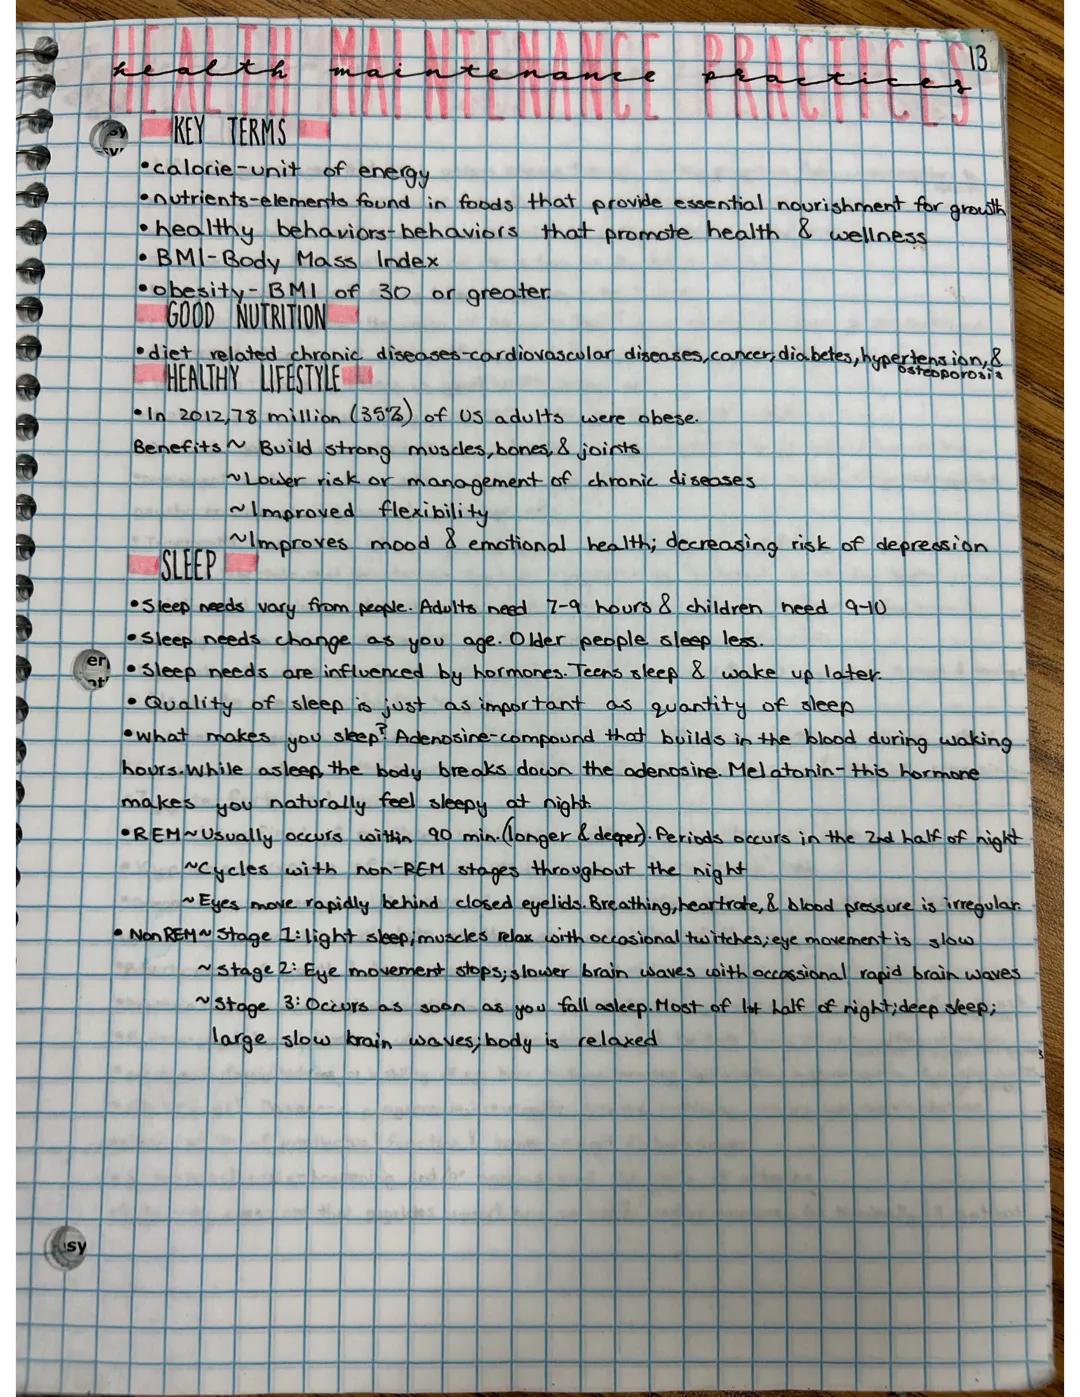 HEALTH MAINTENANCE PRACTICES
health maintenance practices
13
KEY TERMS
•calorie-unit of energy
•nutrients-elements found in foods that provide essential nourishment for growth
•healthy behaviors-behaviors that promote health & wellness
•BMI-Body Mass Index
•obesity-BMI of 30 or greater.
GOOD NUTRITION
•diet related chronic diseases-cardiovascular diseases, cancer, diabetes, hypertension, &
osteoporosis
HEALTHY LIFESTYLE
•In 2012, 78 million (35%) of US adults were obese.
Benefits~ Build strong muscles, bones, & joints
~Lower risk or management of chronic diseases
~Improved flexibility
~Improves mood & emotional health; decreasing risk of depression
SLEEP
•Sleep needs vary from people. Adults need 7-9 hours & children need 9-10
•Sleep needs change as you age. Older people sleep less.
•Sleep needs are influenced by hormones. Teens sleep & wake up later.
•Quality of sleep is just as important as quantity of sleep
•What makes you sleep? Adenosine-compound that builds in the blood during waking
hours. While asleep, the body breaks down the adenosine. Melatonin-this hormone
makes you naturally feel sleepy at night.
•REM~Usually occurs within 90 min. (longer & deeper). Periods occurs in the 2nd half of night
~Cycles with non-REM stages throughout the night
~Eyes move rapidly behind closed eyelids. Breathing, heartrate, & blood pressure is irregular.
•Non REM~Stage 1: light sleep; muscles relax with occasional twitches; eye movement is slow
~Stage 2: Eye movement stops; slower brain waves with occassional rapid brain waves
~Stage 3: Occurs as soon as you fall asleep. Most of 1st half of night; deep sleep;
large slow brain waves; body is relaxed